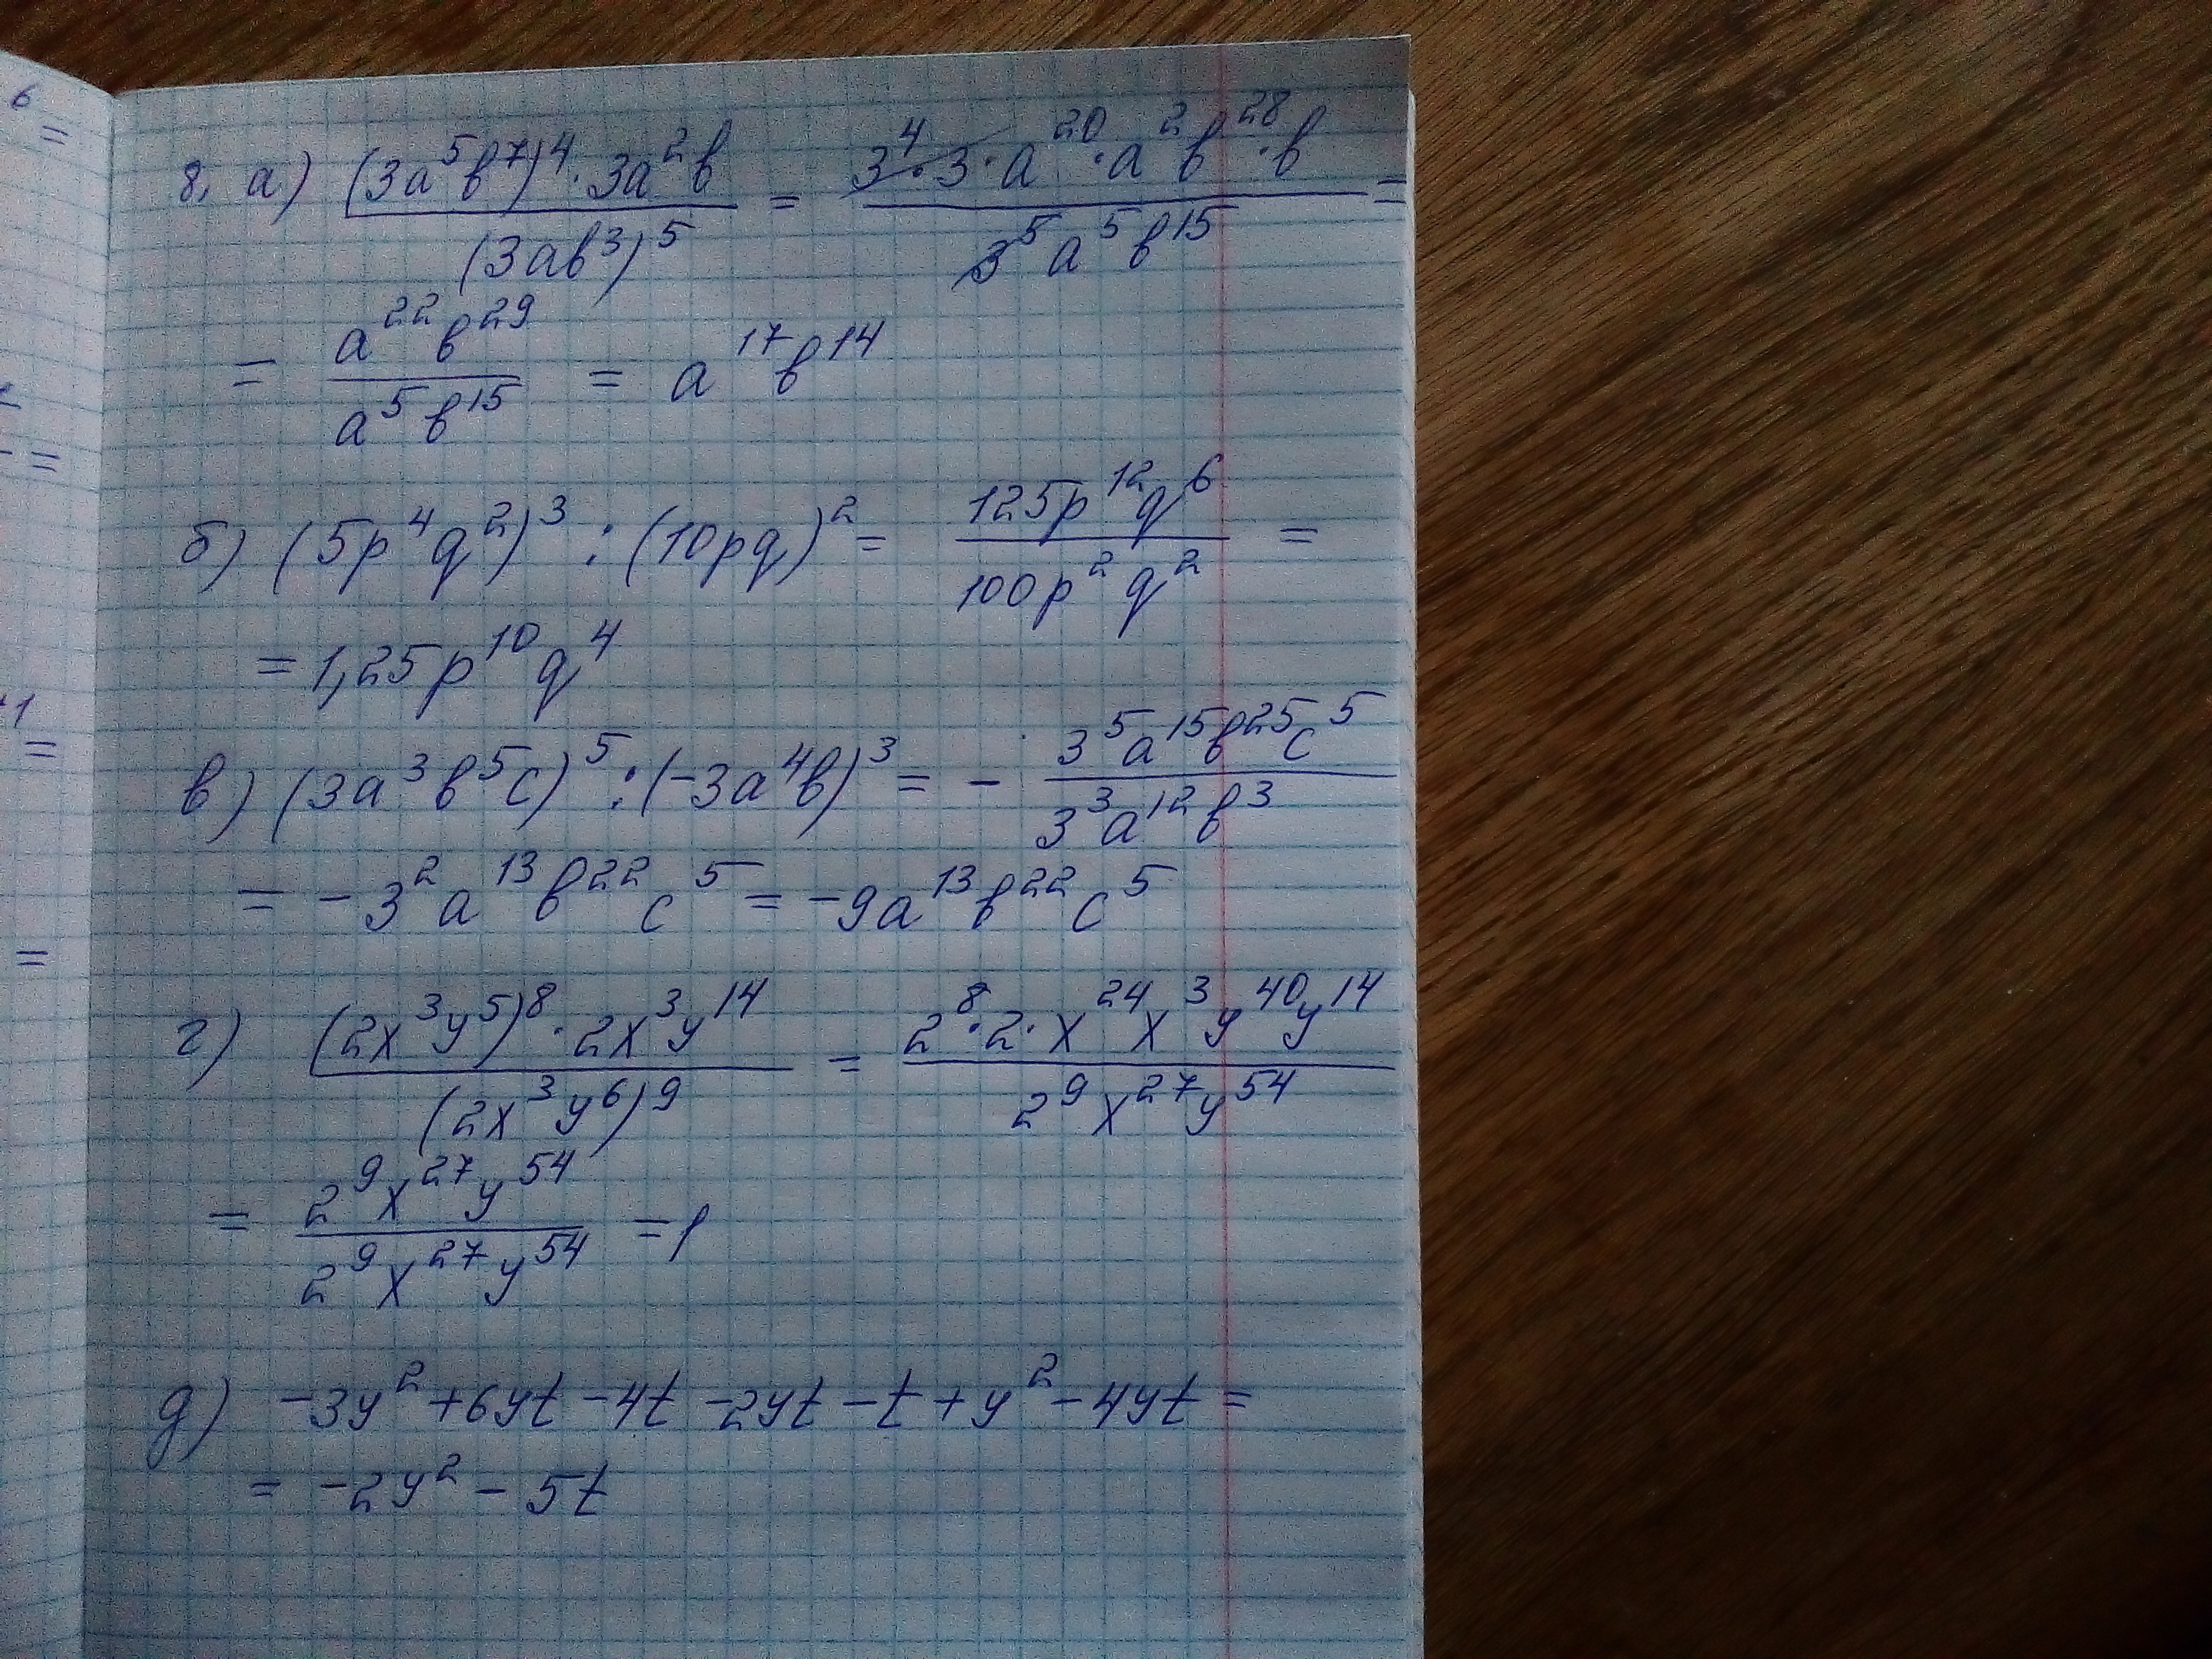 8, а) (3a⁵b⁷)⁴·3a²b / (3ab³)⁵ = 3⁴·3·a²⁰·a²b²⁸·b / 3⁵a⁵b¹⁵ =
= a²²b²⁹ / a⁵b¹⁵ = a¹⁷b¹⁴
б) (5p⁴q²)³ : (10pq)² = 125p¹²q⁶ / 100p²q² =
= 1,25p¹⁰q⁴
в) (3a³b⁵c)⁵ : (-3a⁴b)³ = - 3⁵a¹⁵b²⁵c⁵ / 3³a¹²b³
= -3²a¹³b²²c⁵ = -9a¹³b²²c⁵
г) (2x³y⁵)⁸·2x³y¹⁴ / (2x³y⁶)⁹ = 2⁸·2·x²⁴x³y⁴⁰y¹⁴ / 2⁹x²⁷y⁵⁴
= 2⁹x²⁷y⁵⁴ / 2⁹x²⁷y⁵⁴ = 1
д) -3y²+6yt-4t-2yt-t+y²-4yt=
= -2y²-5t